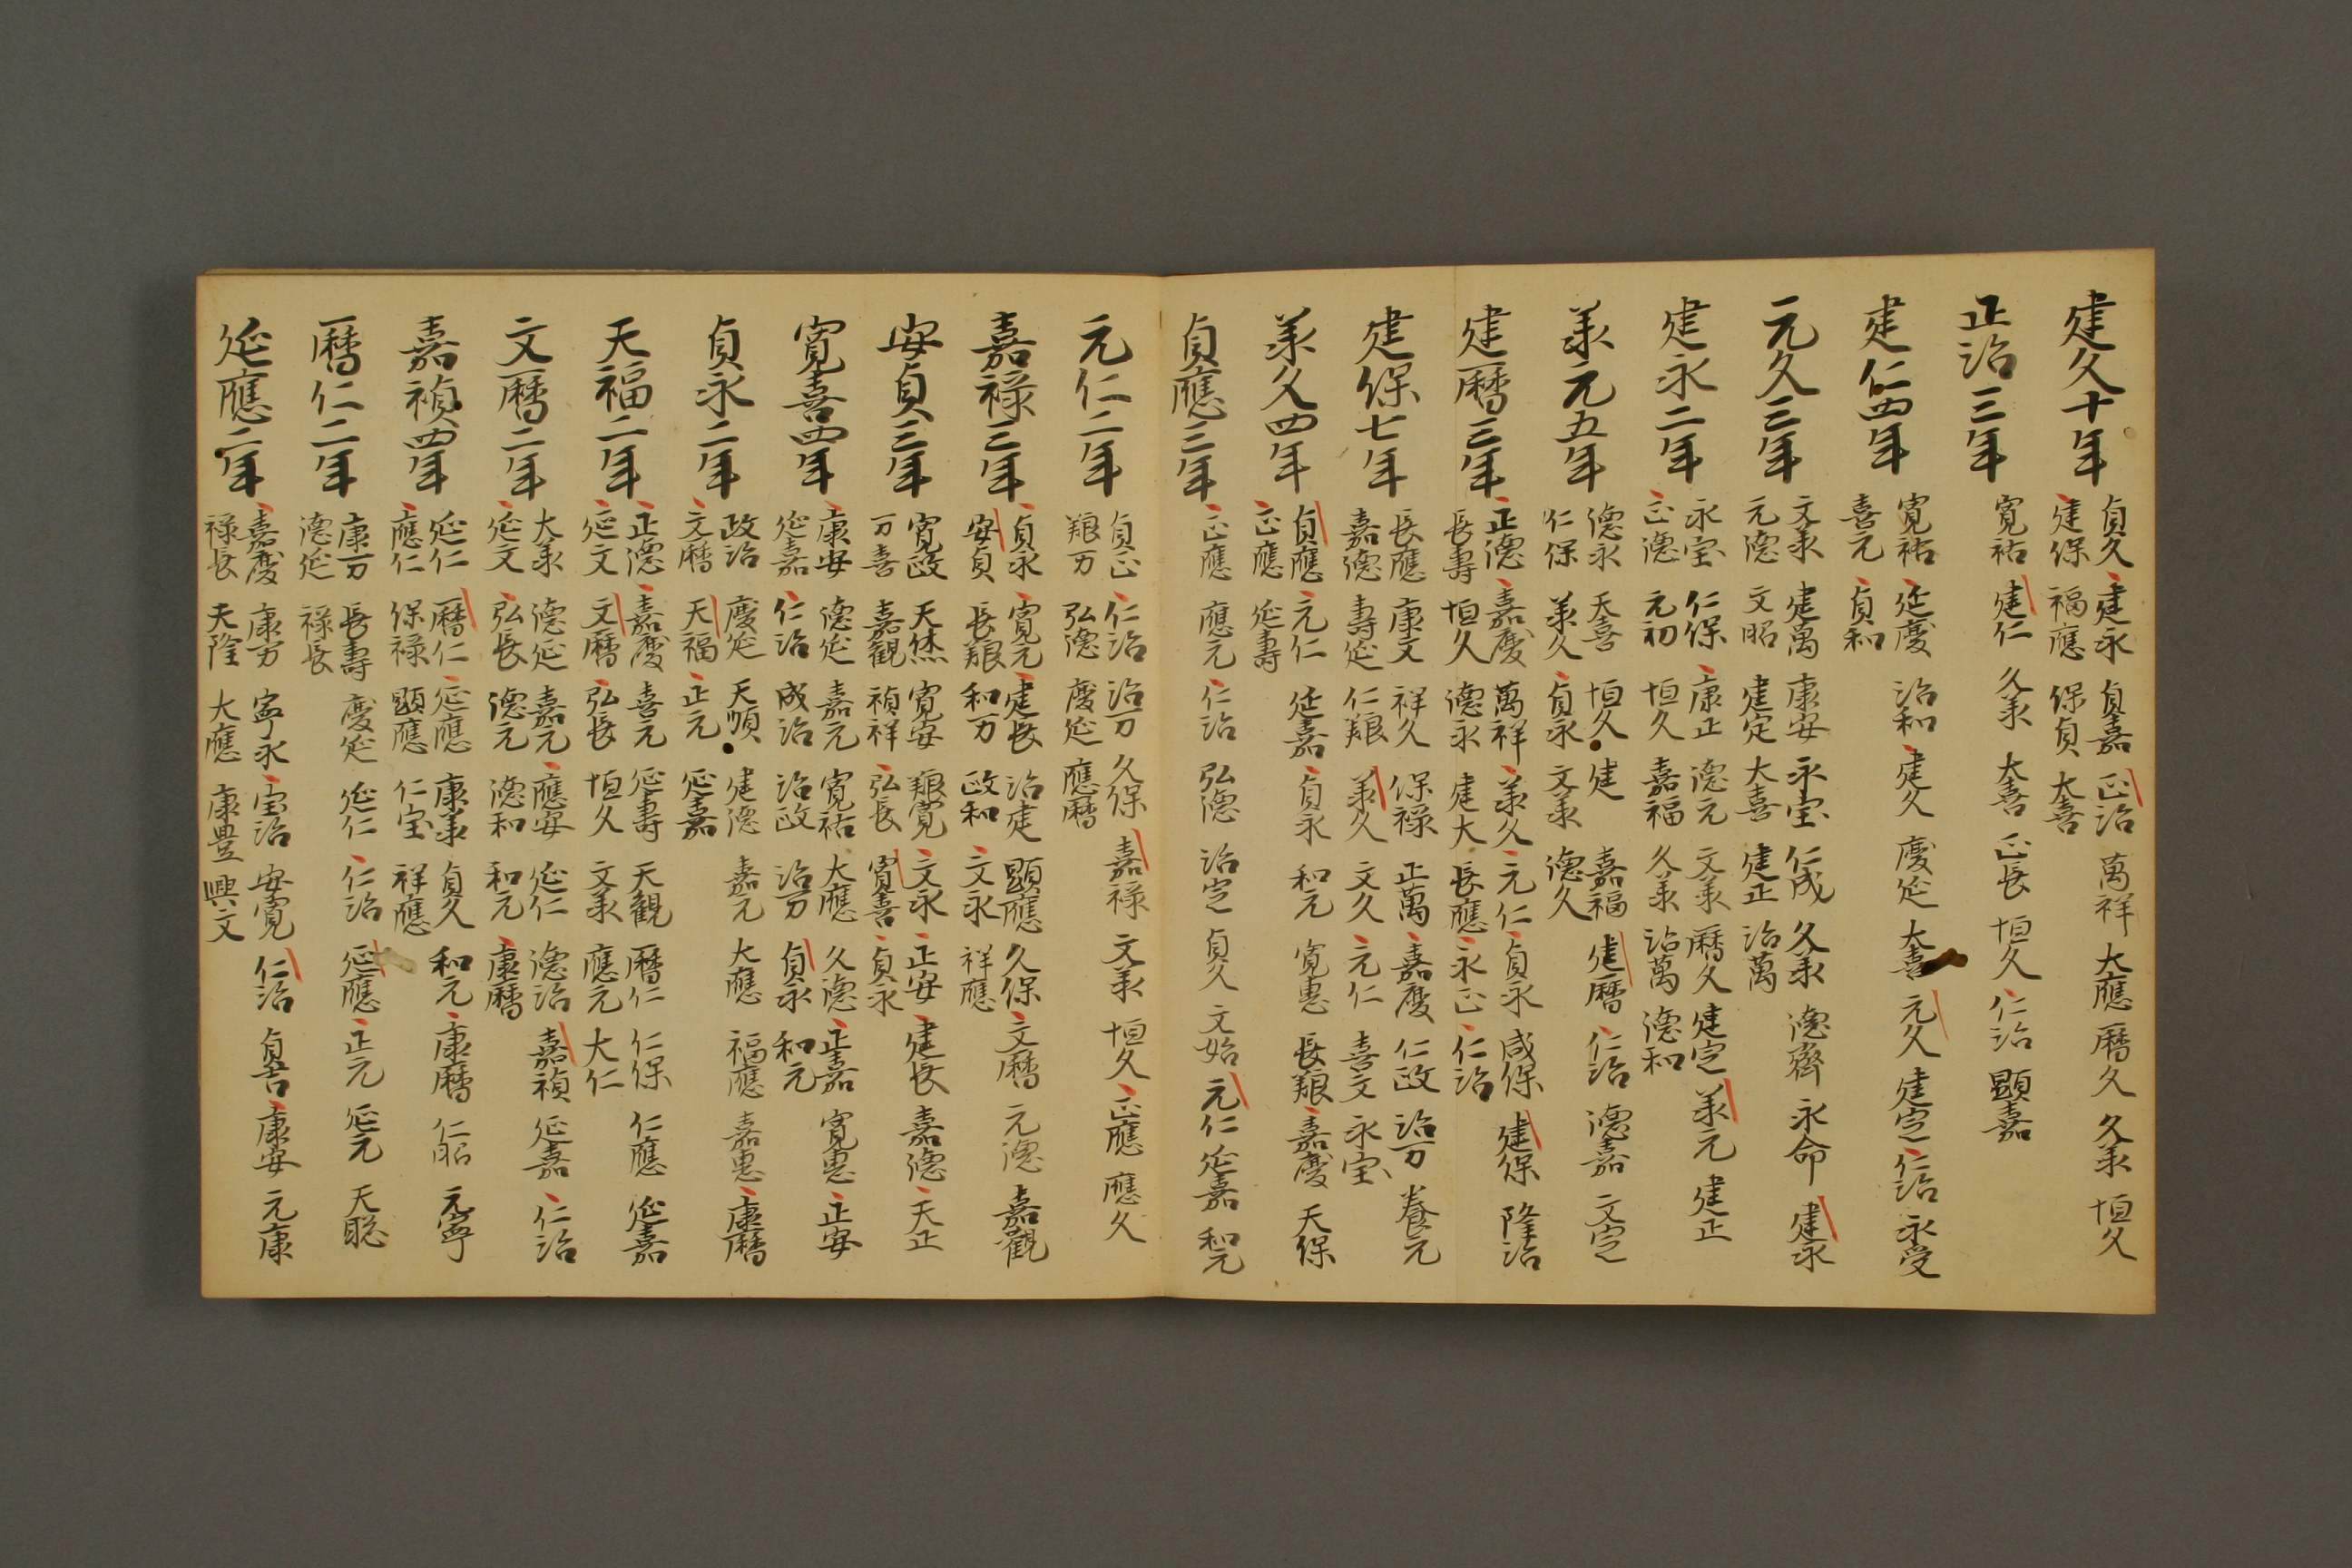 建久十年
貞久 建永 貞嘉 正治 萬祥 大應 暦久 久承 恒久
建保 福應 保貞 大喜
正治三年
寛祐 建仁 久承 大喜 正長 恒久 仁治 顕嘉
建仁四年
寛祐 延慶 治和 建久 慶延 大喜 元久 建定 仁治 永受
喜元 貞和
元久三年
文承 建萬 康安 永宝 仁成 久承 徳齊 永命 建永
元徳 文昭 建定 大喜 建正 治萬
建永二年
永宝 仁保 康正 徳元 文承 暦久 建定 承元 建正
正徳 元初 恒久 嘉福 久承 治萬 徳和
承元五年
徳永 天喜 恒久 建 嘉福 建暦 仁治 徳嘉 文定
仁保 承久 貞永 文承 徳久
建暦三年
正徳 嘉慶 萬祥 承久 元仁 貞永 咸保 建保 隆治
長壽 恒久 徳永 建大 長應 永正 仁治
建保七年
長應 康文 祥久 保禄 正萬 嘉慶 仁政 治万 養元
嘉徳 壽延 仁艱 承久 文久 元仁 喜文 永宝
承久四年
貞應 元仁 延嘉 貞永 和元 寛恵 長艱 嘉慶 天保
正應 延壽
貞應三年
正應 應元 仁治 弘徳 治定 貞久 文始 元仁 延嘉 和元
元仁二年
貞正 仁治 治万 久保 嘉禄 文承 恒久 正應 應久
艱万 弘徳 慶延 應暦
嘉禄三年
貞永 寛元 建長 治建 顕應 久保 文暦 元徳 嘉觀
安貞 長艱 和万 政和 文永 祥應
安貞三年
寛政 天烋 寛安 艱寛 文永 正安 建長 嘉徳 天正
万喜 嘉觀 禎祥 弘長 寛喜 貞永
寛喜四年
康安 徳延 嘉元 寛祐 大應 久徳 正嘉 寛恵 正安
延嘉 仁治 成治 治政 治万 貞永 和元
貞永二年
政治 慶延 天順 建徳 嘉元 大應 福應 嘉恵 康暦
文暦 天福 正元 延嘉
天福二年
正徳 嘉慶 喜元 延壽 天觀 暦仁 仁保 仁應 延嘉
延文 文暦 弘長 恒久 文承 應元 大仁
文暦二年
大承 徳延 嘉元 應安 延仁 徳治 嘉禎 延嘉 仁治
延文 弘長 徳元 徳和 和元 康暦
嘉禎四年
延仁 暦仁 延應 康承 貞久 和元 康暦 仁昭 元寧
應仁 保禄 顕應 仁宝 祥應
暦仁二年
康万 長壽 慶延 延仁 仁治 延應 正元 延元 天聡
徳延 禄長
延應二年
嘉慶 康万 寧永 宝治 安寛 仁治 貞吉 康安 元康
禄長 天隆 大應 康豊 興文